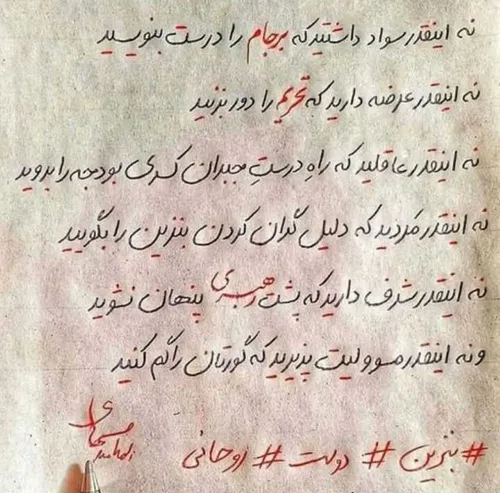 نه اینقدر سواد داشتید که برجام را درست بنویسید
نه اینقدر عرضه دارید که تحریم را دور بزنید
نه اینقدر عاقلید که راهِ درستِ جبران کسری بودجه را بروید
نه اینقدر مَردید که دلیل گران کردن بنزین را بگویید
نه اینقدر شرف دارید که پشت رهبری پنهان نشوید
و نه اینقدر مسوولیت پذیرید که گورتان را گم کنید
# بنزین # دولت # روحانی